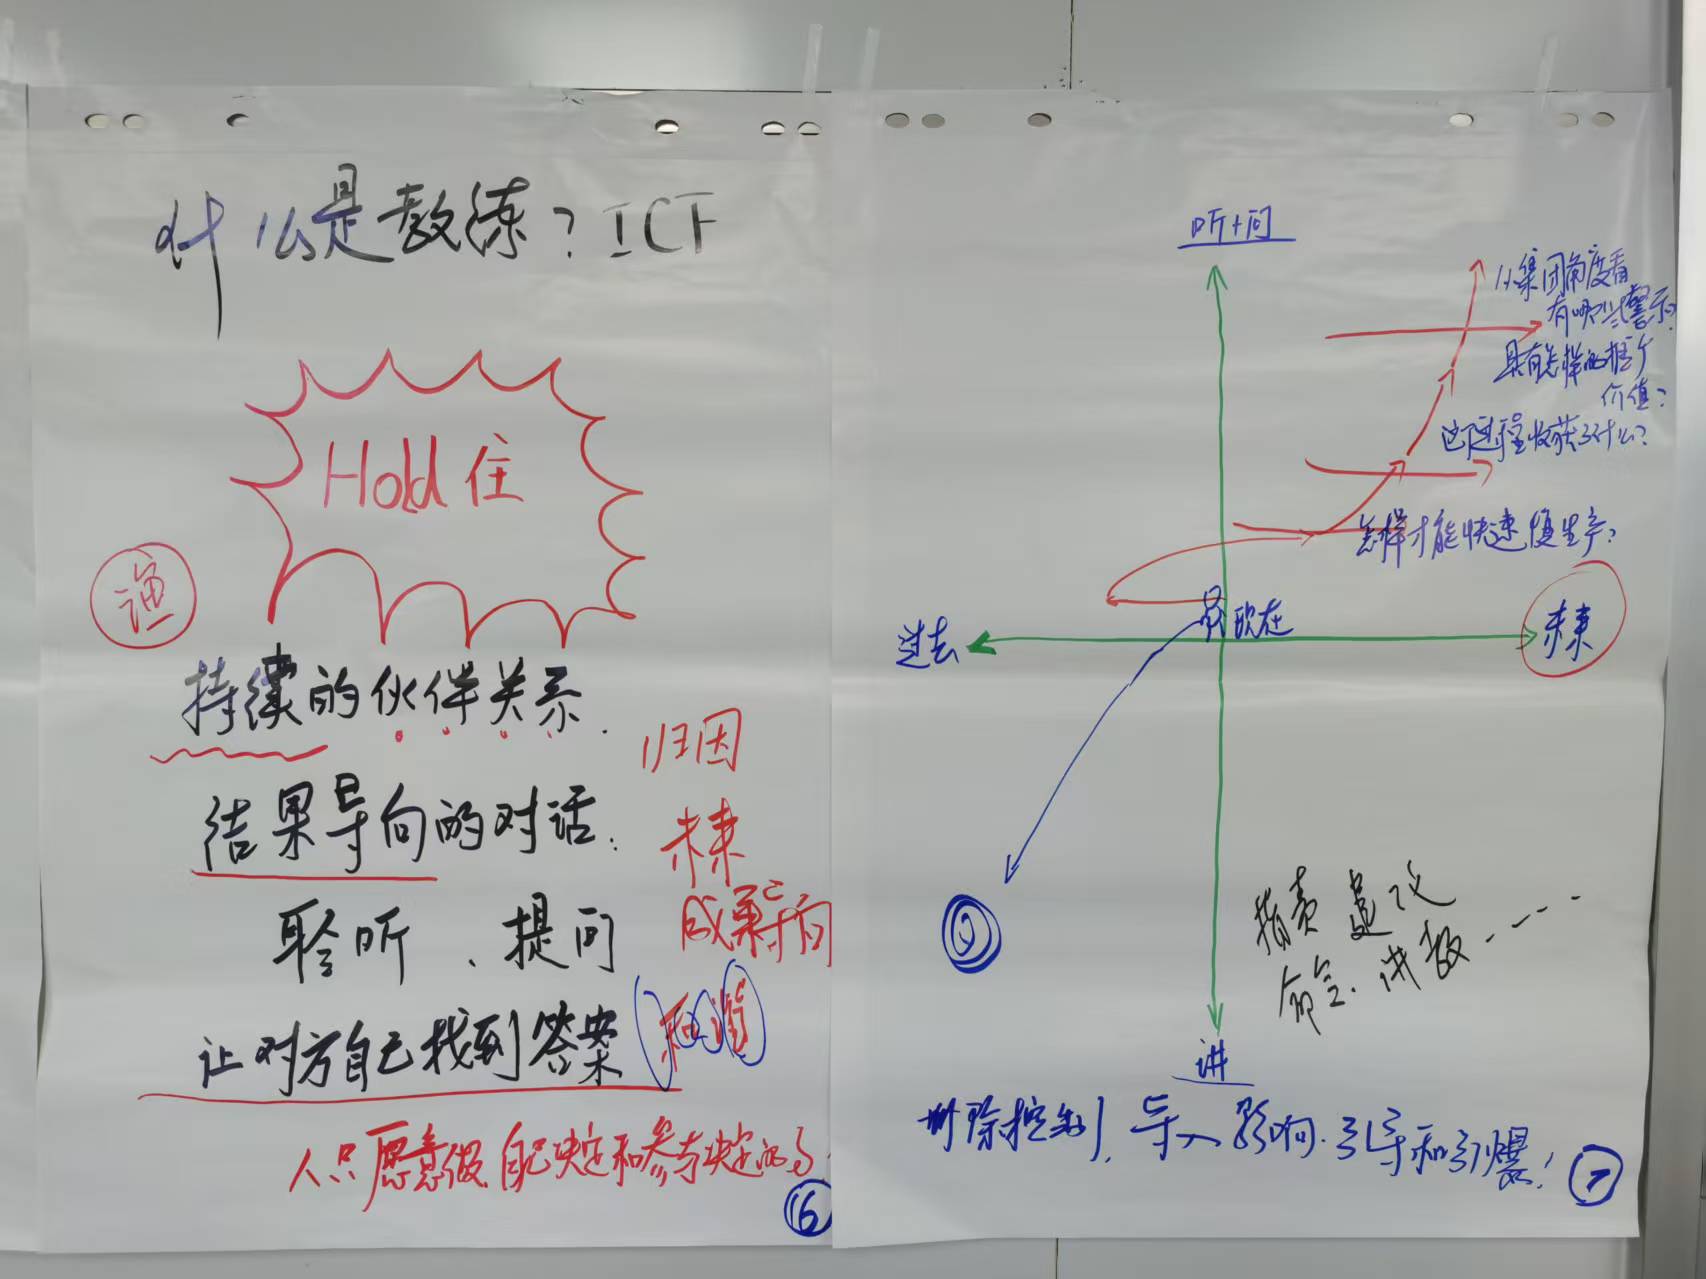 什么是教练？ICF
Hold住
渔
持续的伙伴关系.
归因
结果导向的对话.
未来
聆听、提问
成果导向
让对方自己找到答案
和谐
人只愿意做自己决定和参与决定的事
6
听+问
从集团角度看
有哪些警示？
具有怎样的推广
价值？
这个过程收获了什么？
怎样才能快速复生产？
过去
现在
未来
指责 建议
命令、讲教……
讲
删除控制，导入影响.引导和引爆！
7